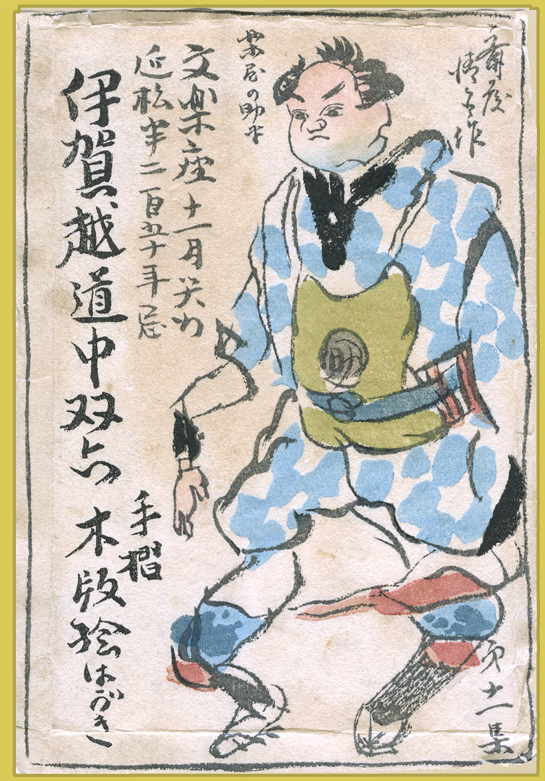 茶屋の助平
文楽座十一月興行
近松半二百五十年忌
伊賀越道中双六
手摺
木版絵はがき
助
第十一集